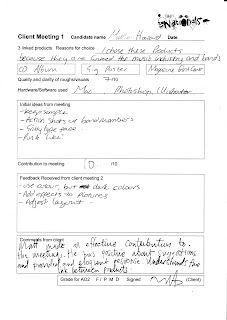 Nationals
Client Meeting 1 Candidate name Matt Howard Date
3 linked products Reasons for choice I chose these Products
because they are linked the music industry and bands
CD Album Gig Poster Magazine
Quality and clarity of roughs/visuals 7/10
Hardware/Software used Mac, Photoshop, Illustrator
Initial ideas from meeting
- Keep simple
- Action shots of band members
- type face
- Punk
Contribution to meeting /10
Feedback Received from client meeting 2
- Use colour, but dark colours
- Add effects to Pictures
- Adjust layout
Comments from client
Matt made a effective contribution to
the meeting. He was positive about suggestions
and provided and eloquent response. Understands the
link between products.
Grade for AO2 F / P M D Signed (Client)